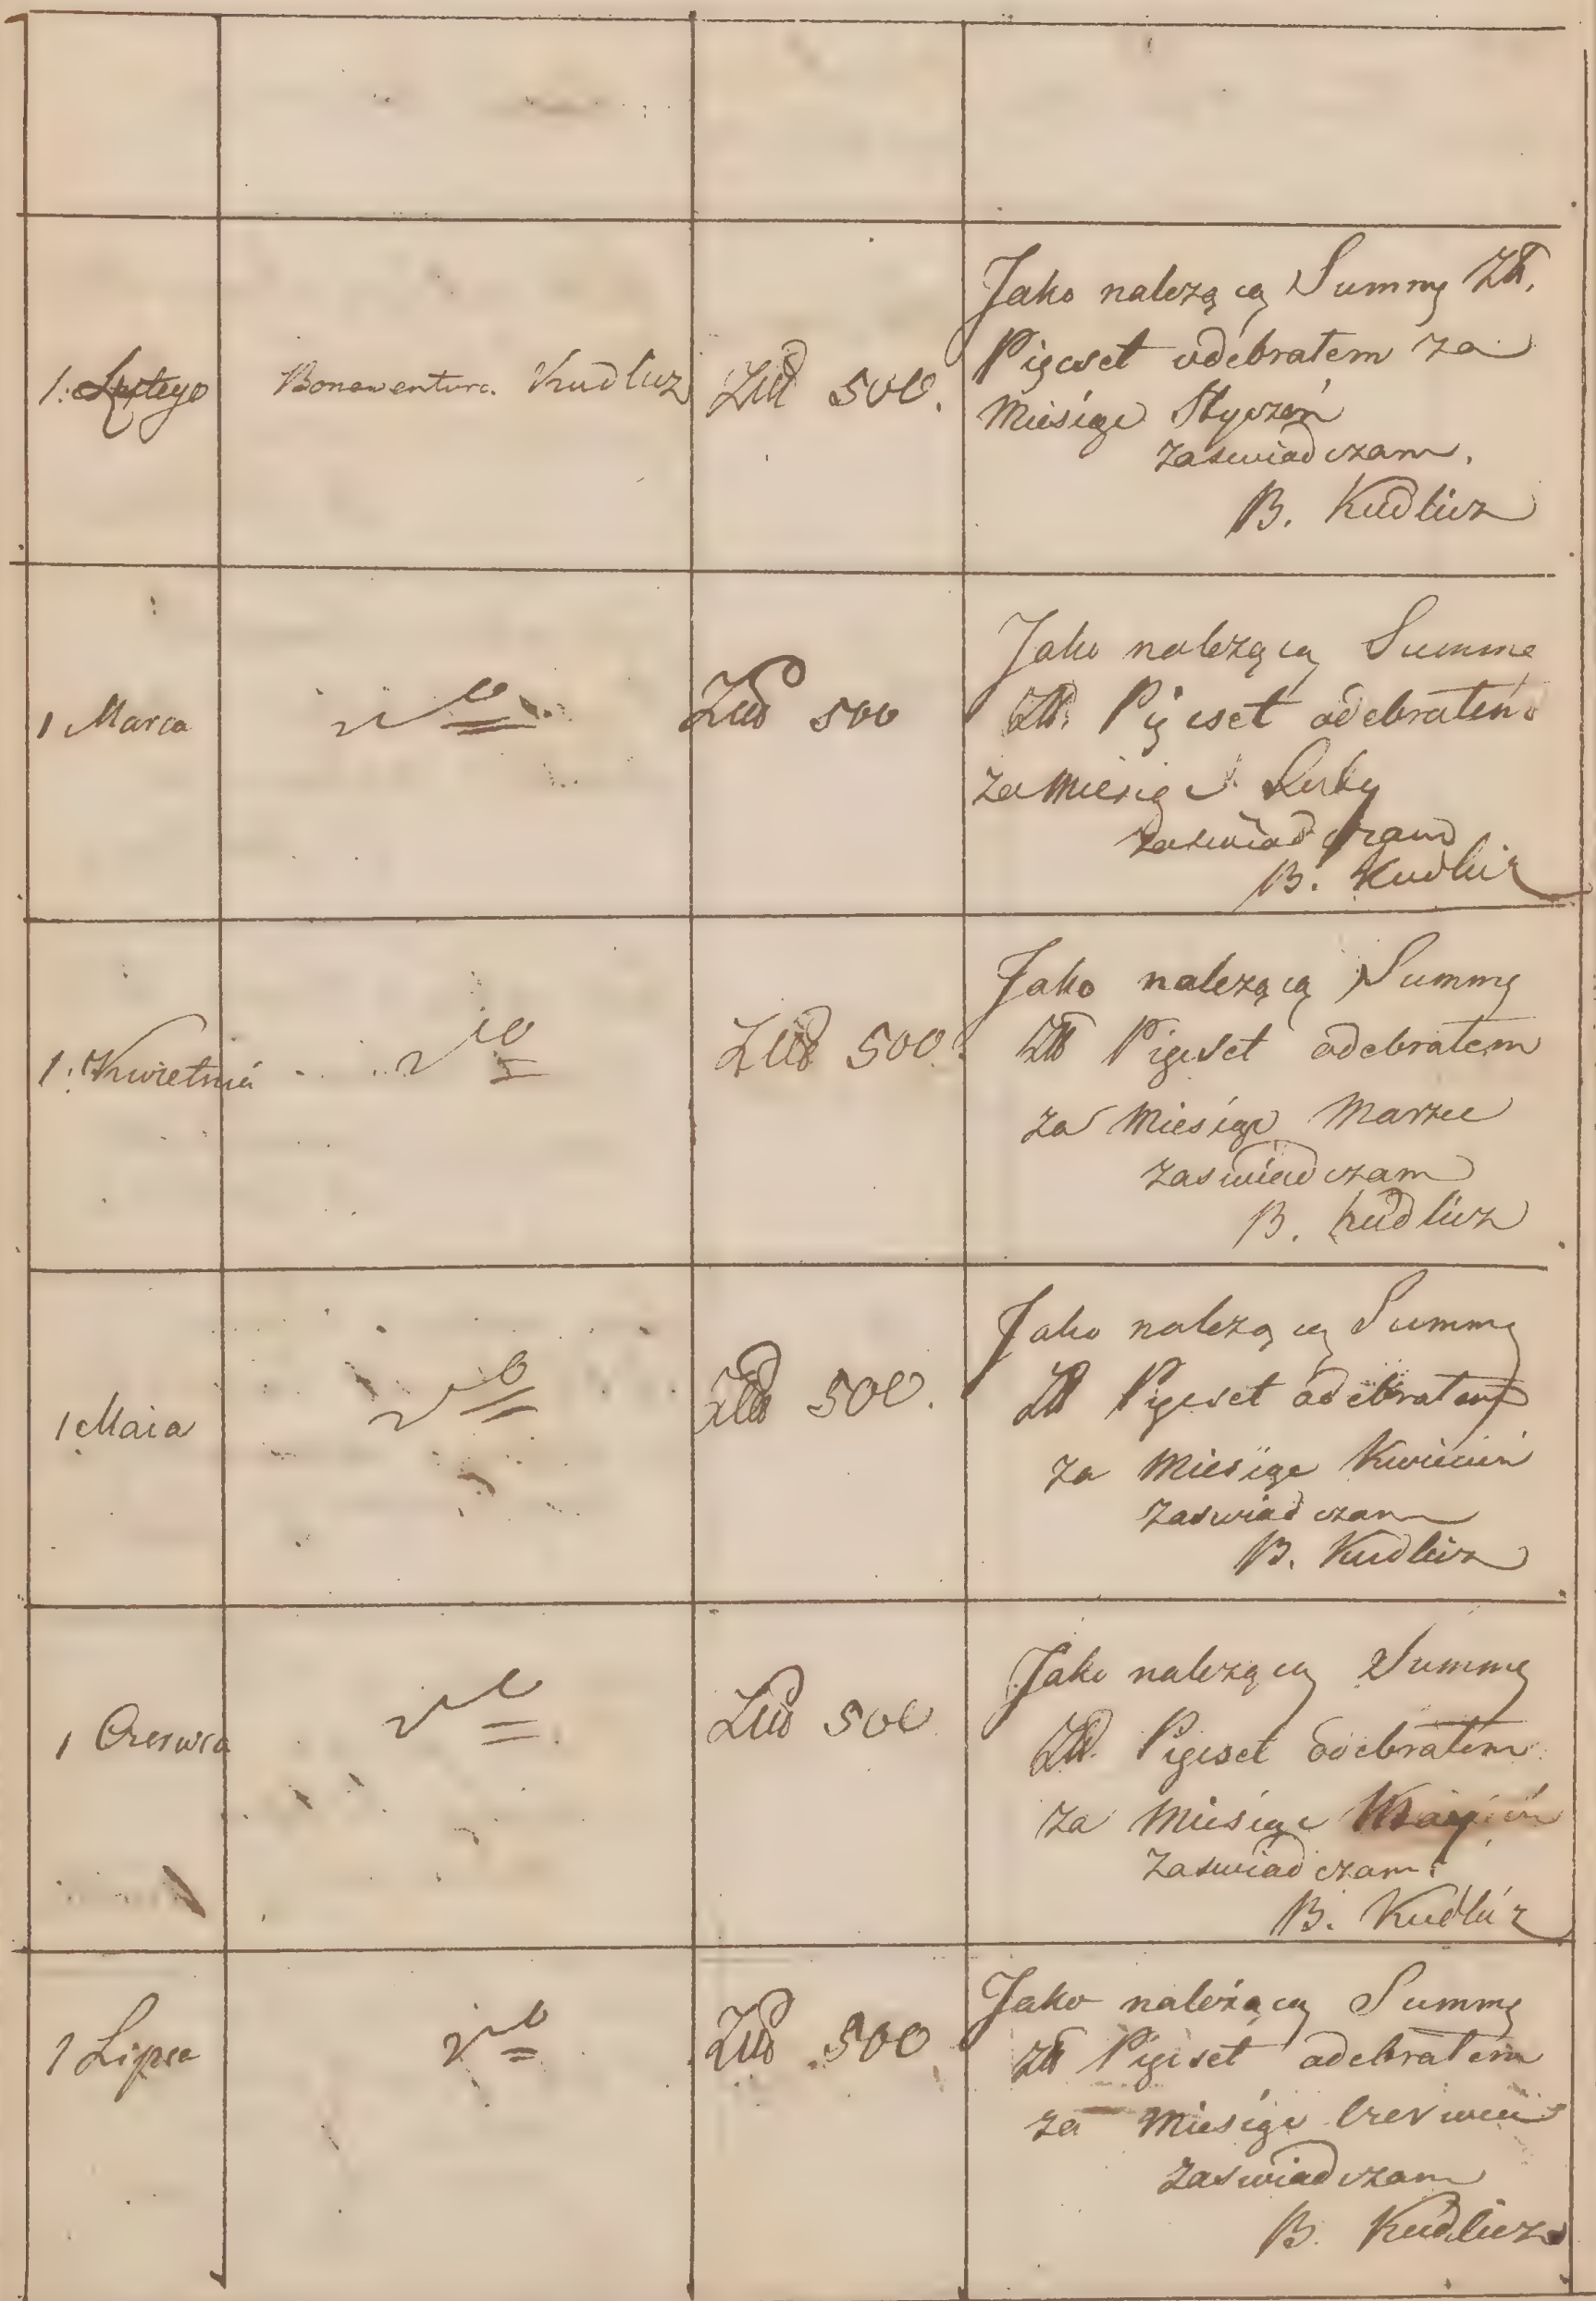 1. Lutego
Bonawentura Kudlicz
Złł 500.
Jako należącą Summę Zł.
Pięcset odebrałem za
Miesiąc Styczeń
zaswiadczam.
B. Kudlicz
1 Marca
Złł 500
Jako należącą Summę
Zł. Pięcset odebrałem
za Miesiąc Luty
zaswiadczam
B. Kudlicz
1. Kwietnia
Złł 500.
Jako należącą Summę
Zł Pięcset odebrałem
za Miesiąc Marzec
zaswiadczam
B. Kudlicz
1 Maia
Złł 500.
Jako należącą Summę
Zł Pięcset odebrałem
za Miesiąc Kwiecień
zaswiadczam
B. Kudlicz
1 Czerwca
Złł 500
Jako należącą Summę
Zł. Pięcset odebrałem
za Miesiąc May
zaswiadczam.
B. Kudlicz
1 Lipca
Złł 500
Jako należącą Summę
Zł Pięcset odebrałem
za Miesiąc Czerwiec
zaswiadczam
B. Kudlicz